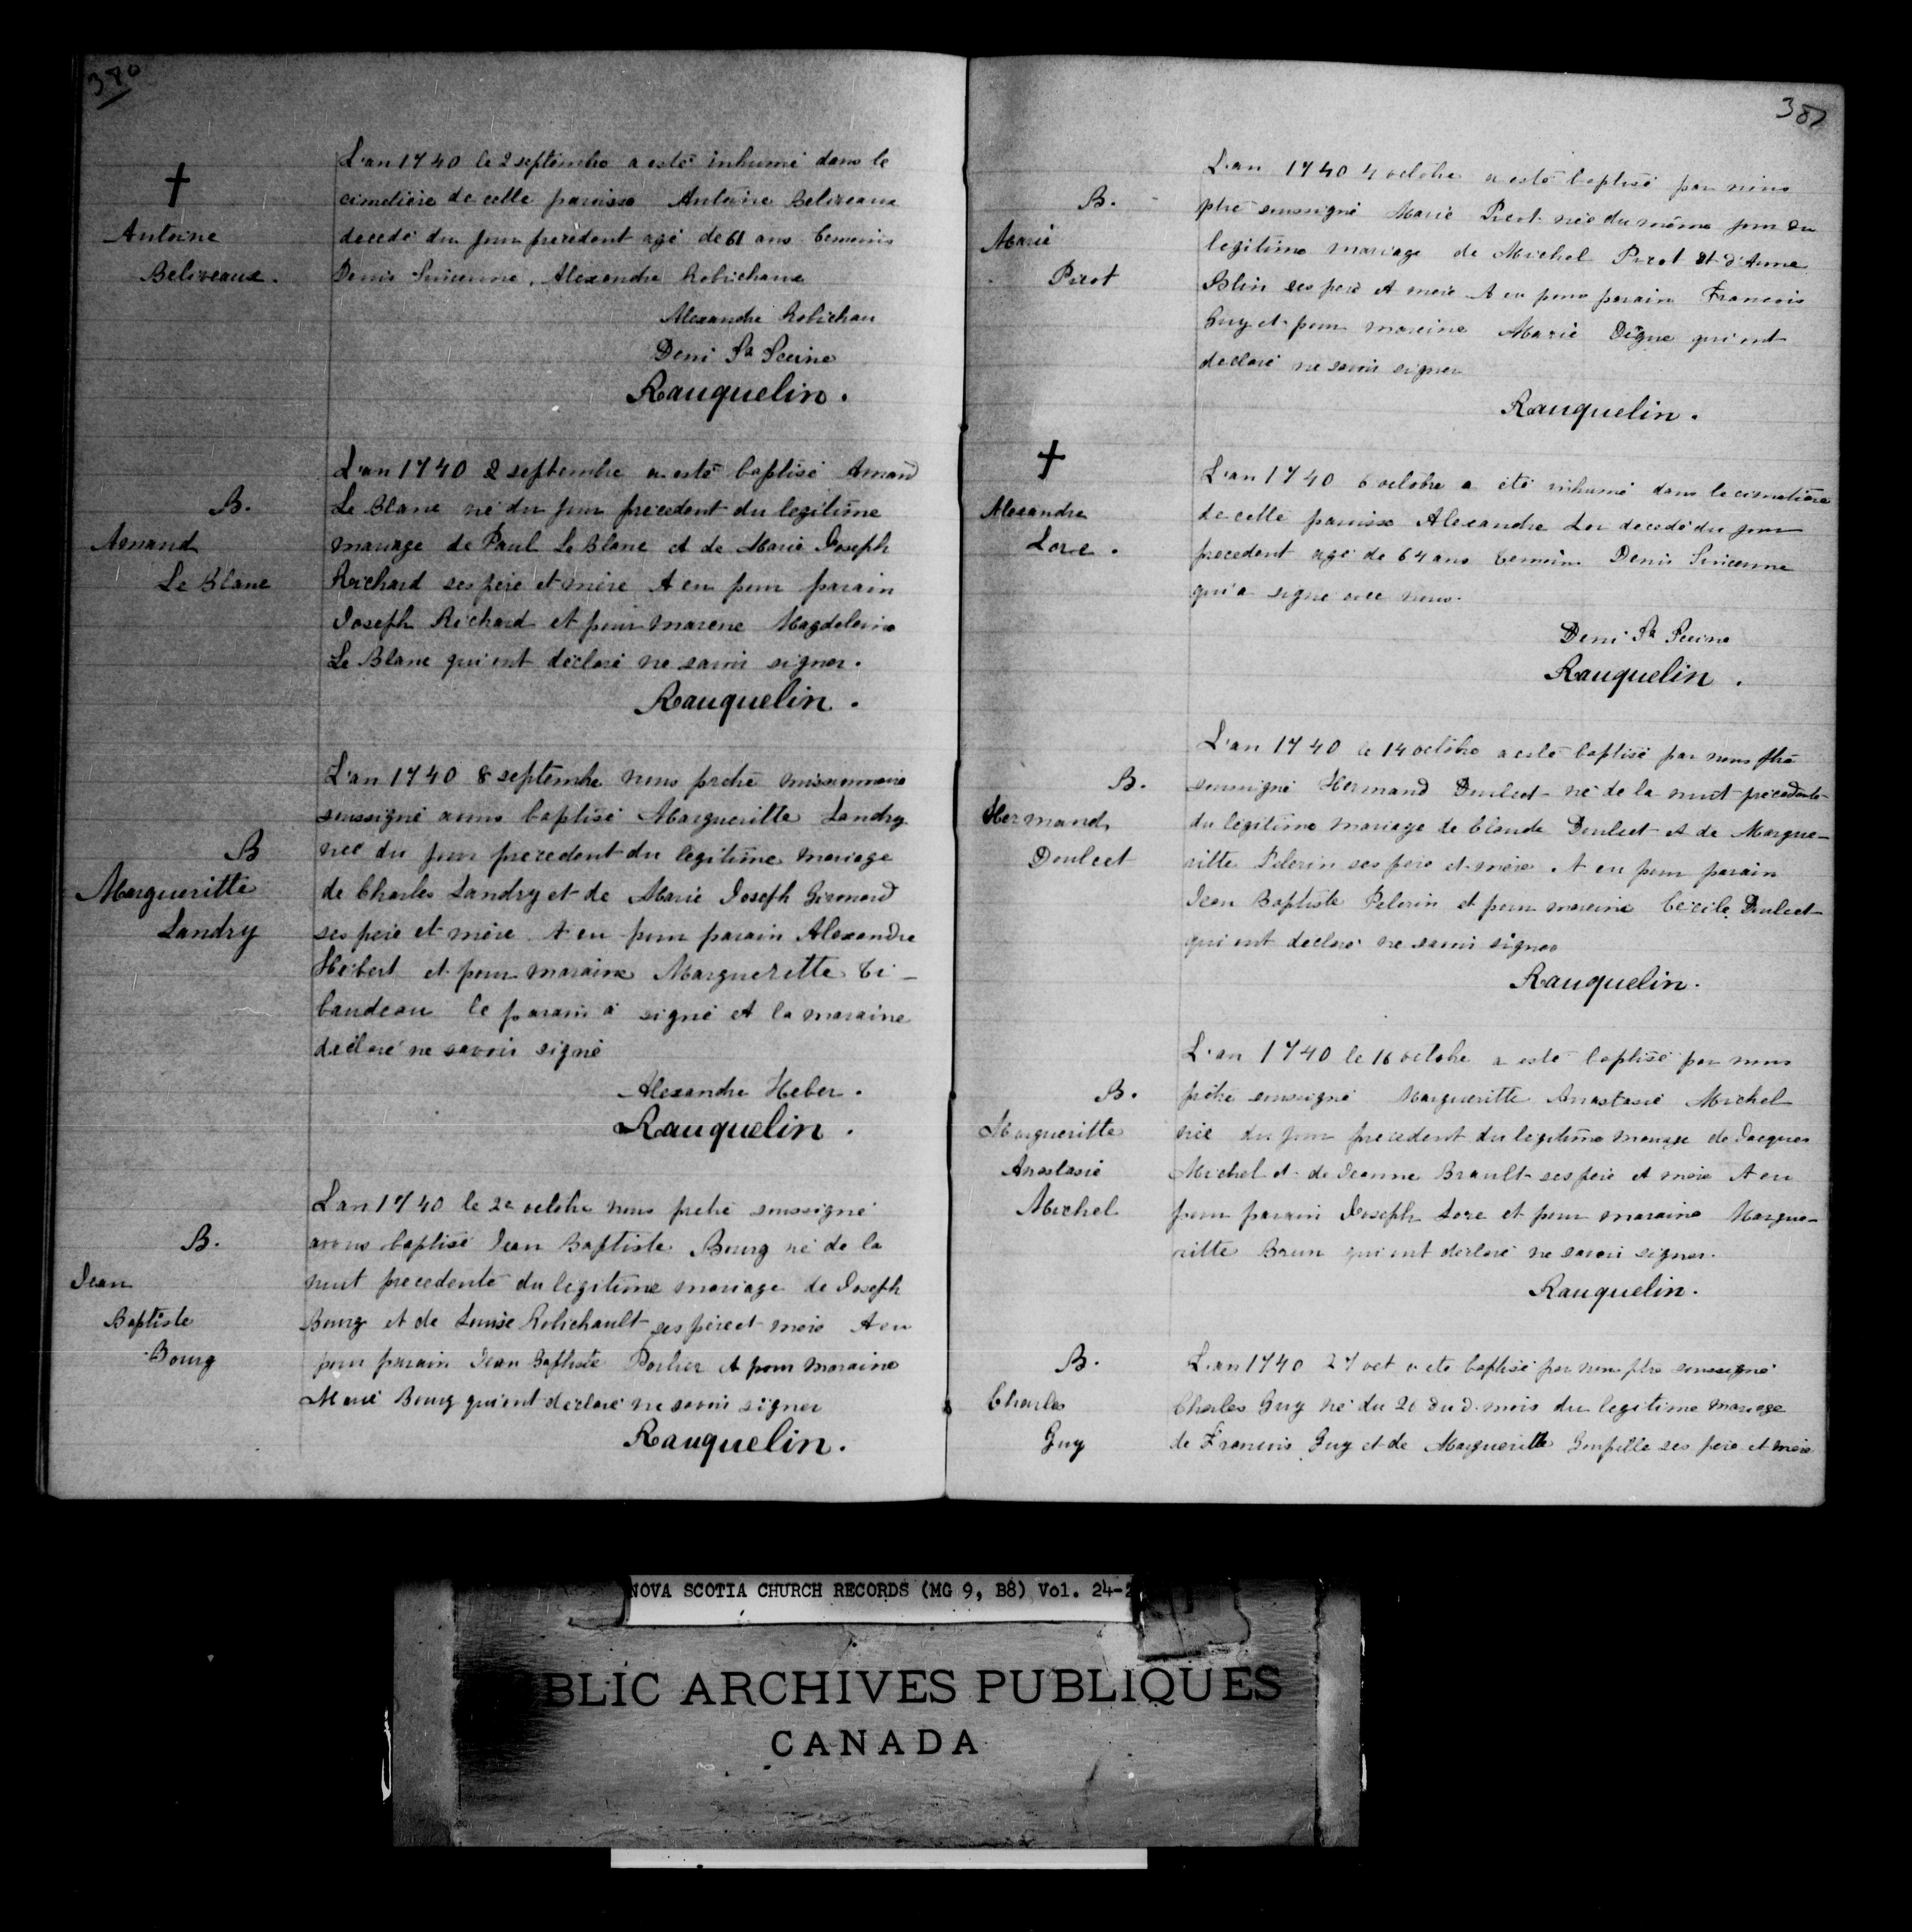 380
†
Antoine
Beliveaux.
L'an 1740 le 2 septembre a esté inhumé dans le
cimetière de cette paroisse Antoine Beliveaux
decedé du jour precedent agé de 61 ans temoins
Denis , Alexandre Robichaux
Alexandre Robichau
Deni St Seeine
Rauquelin.
B.
Amand
Le Blanc
L'an 1740 2 septembre a esté baptisé Amand
Le Blanc né du jour precedent du legitime
mariage de Paul Le Blanc et de Marie Joseph
Richard ses père et mère A eu pour parain
Joseph Richard et pour marene Magdeleine
Le Blanc qui ont déclaré ne savoir signer.
Rauquelin.
B
Margueritte
Landry
L'an 1740 8 septembre nous prêtre missionnaire
soussigné avons baptisé Margueritte Landry
née du jour precedent du legitime mariage
de Charles Landry et de Marie Joseph
ses père et mère A eu pour parain Alexandre
Hébert et pour maraine Marguerette Ti-
baudeau le parain a signé et la maraine
déclaré ne savoir signé
Alexandre Heber.
Rauquelin.
B.
Jean
Baptiste
Bourg
L'an 1740 le 2e octobre nous prêtre soussigné
avons baptisé Jean Baptiste Bourg né de la
nuit precedente du legitime mariage de Joseph
Bourg et de Louise Robichault ses père et mère A eu
pour parain Jean Baptiste Porlier et pour maraine
Marie Bourg qui ont declaré ne savoir signer
Rauquelin.
381
B.
Marie
Picot
L'an 1740 4 octobre a esté baptisé par nous
ptre soussigné Marie Picot née du même jour du
legitime mariage de Michel Picot et d'Anne
Blin ses père et mère A eu pour parain Francois
Guy et pour maraine Marie Dégue qui ont
declaré ne savoir signer
Rauquelin.
†
Alexandre
Lore.
L'an 1740 6 octobre a été inhumé dans le cimetière
de cette paroisse Alexandre Lor decedé du jour
precedent agé de 64 ans temoins Denis
qui a signé avec nous.
Deni St Seeine
Rauquelin.
B.
Hermand
Doulcet
L'an 1740 le 14 octobre a esté baptisé par nous ptre
soussigné Hermand Doulcet né de la nuit précedente
du légitime mariage de Claude Doulcet et de Margue-
ritte Pelerin ses père et mère. A eu pour parain
Jean Baptiste Pelerin et pour maraine Cécile Doulcet
qui ont declaré ne savoir signer
Rauquelin.
B.
Margueritte
Anastasie
Michel
L'an 1740 le 16 octobre a esté baptisé par nous
prêtre soussigné Margueritte Anastasie Michel
née du jour precedent du legitime mariage de Jacques
Michel et de Jeanne Brault ses père et mère A eu
pour parain Joseph Lore et pour maraine Margue-
ritte Brun qui ont declaré ne savoir signer.
Rauquelin.
B.
Charles
Guy
L'an 1740 27 oct a été baptisé par nous ptre soussigné
Charles Guy né du 26 du d. mois du legitime mariage
de Francois Guy et de Margueritte ses père et mère
NOVA SCOTIA CHURCH RECORDS (MG 9, B8) Vol. 24-2
BLIC ARCHIVES PUBLIQUES
CANADA